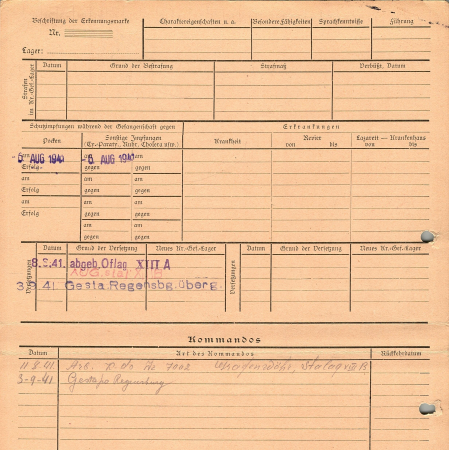 Beschriftung der Erkennungsmarke
Nr.
Lager:
Charaktereigenschaften u. a.
Besondere Fähigkeiten
Sprachkenntnisse
Führung
Strafen im Kr.-Gef.-Lager
Datum
Grund der Bestrafung
Strafmaß
Verbüßt, Datum
Schutzimpfungen während der Gefangenschaft gegen
Erkrankungen
Pocken
Sonstige Impfungen
(Ty.-Paraty., Ruhr, Cholera usw.)
Krankheit
Revier
von bis
Lazarett — Krankenhaus
von bis
5 AUG 1940
am
-6 AUG 1940
am
Erfolg
gegen
gegen
am
am
am
Erfolg
gegen
gegen
am
am
am
Erfolg
gegen
gegen
am
am
gegen
gegen
Versetzungen
Datum
Grund der Versetzung
Neues Kr.-Gef.-Lager
Versetzungen
Datum
Grund der Versetzung
Neues Kr.-Gef.-Lager
8.8.41. abgeb. Oflag XIII A
3.9.41. Gesta. Regensbg. überg.
Kommandos
Datum
Art des Kommandos
Rückkehrdatum
11.8.41. Arb. Kdo No 7002 Stalag VIII B
3-9-41 Gestapo Regensburg